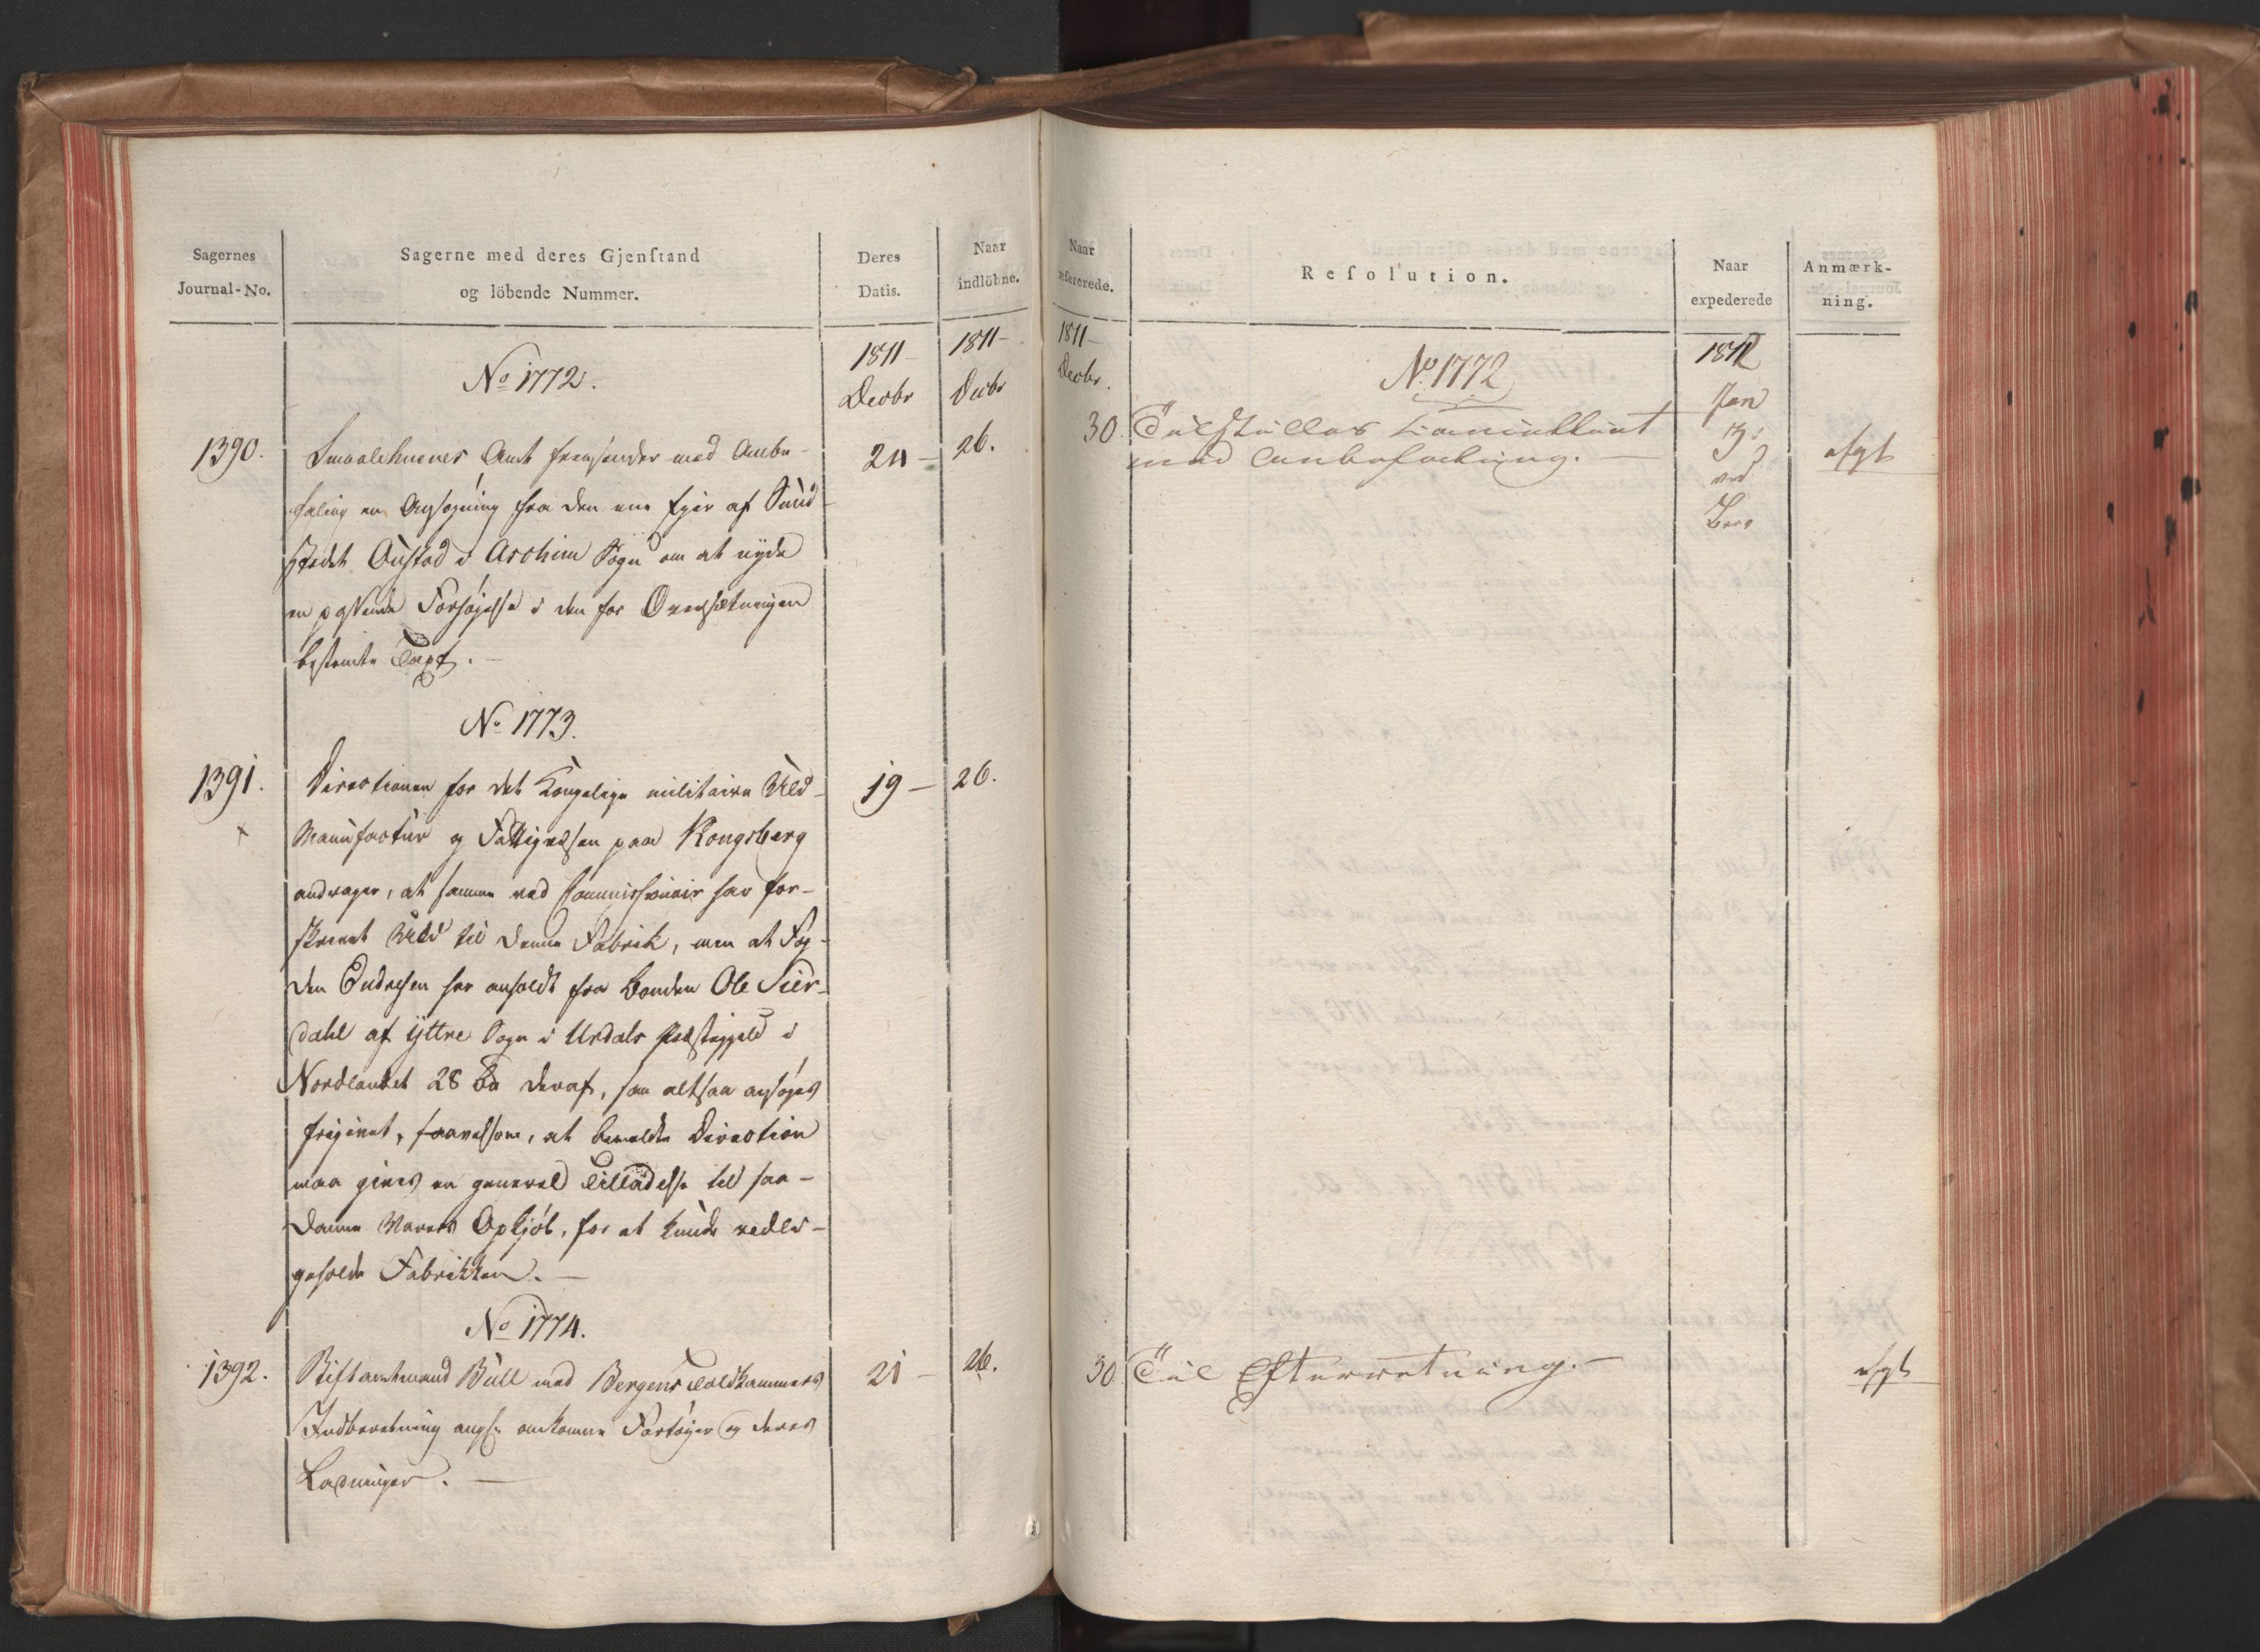 Sagernes
Journal-No.
Sagerne med deres Gjenſtand
og löbende Nummer.
Deres
Datis.
Naar
indlöbne.
1811
Decbr
1811
Decbr
No 1772.
1390.
Smaalehnenes Amt fremsender med Anbe-
24
26.
faling en Ansøgning fra den ene Ejer af Sund-
stedet Onstad i Aschim Sogn om at nyde
en passende Forhøjelse i den for Oversætningen
bestemte Taxt.
No 1773.
1391.
Directionen for det Kongelige militaire Uld-
19
26.
Manufactur og Fattigvæsen paa Kongsberg
andrager, at samme ved Commissionair har for-
skrevet Uld til denne Fabrik, men at Fog-
den Endresen har anholdt fra Bonden Ole Sier-
dahl af Yttre Sogn i Urdals Præstegjeld i
Nordlandet 28 deraf, som altsaa ansøges
frigivet, saavelsom, at bemeldte Direction
maa gives en general Tilladelse til saa-
danne Varers Opkjøb, for at kunde vedli-
geholde Fabrikken.
No 1774.
1392.
Stiftamtmand Bull med Bergens Toldkammers
21
26.
Indberetning angl. omkomne Fartøyer og deres
Ladninger.
Naar
refererede.
Reſolution.
Naar
expederede
Anmærk-
ning.
1811
Decbr.
No 1772
1812
Jan
30.
Tilstilles
med Anbefaling.
afgt
30
Til Efterretning.
afgt